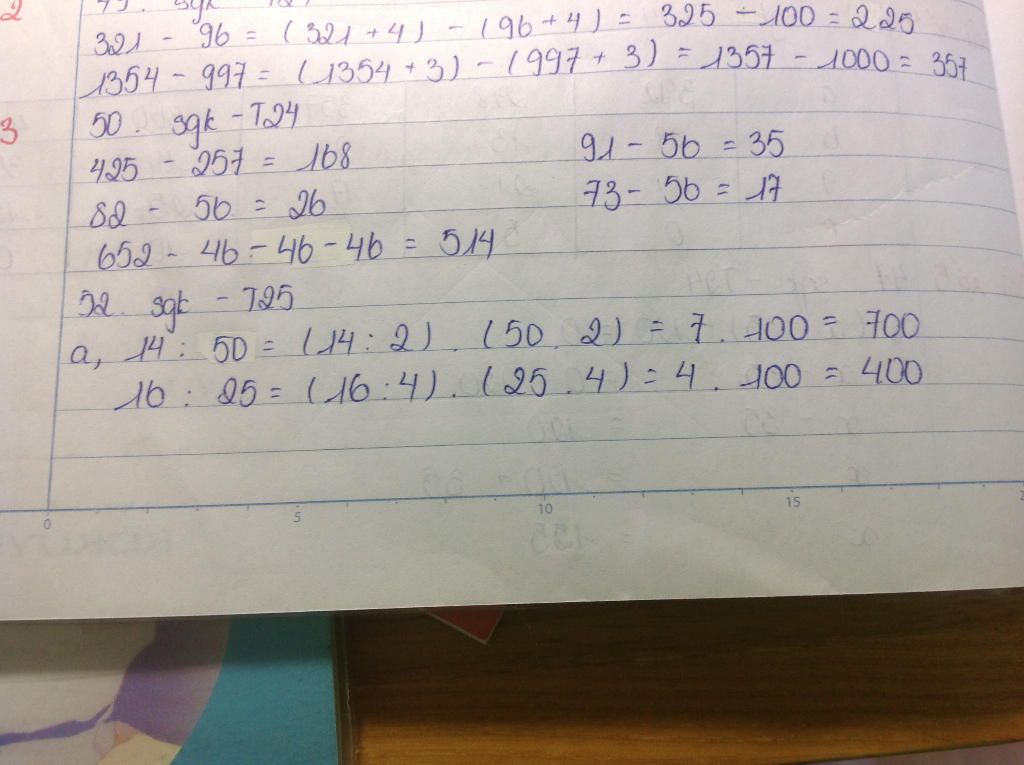 49. sgk
321 - 96 = (321 + 4) - (96 + 4) = 325 - 100 = 225
1354 - 997 = (1354 + 3) - (997 + 3) = 1357 - 1000 = 357
50. sgk - T24
425 - 257 = 168 91 - 56 = 35
82 - 56 = 26 73 - 56 = 17
652 - 46 - 46 - 46 = 514
52. sgk - T25
a, 14 : 50 = (14 : 2) . (50 . 2) = 7 . 100 = 700
16 : 25 = (16 : 4) . (25 . 4) = 4 . 100 = 400
0 5 10 15
2
3